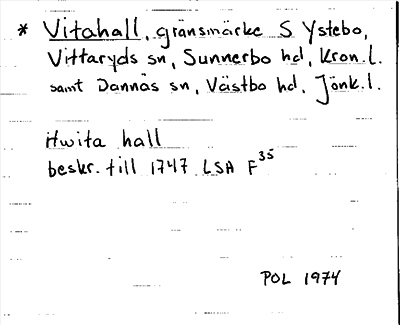 * Vitahall, gränsmärke S Ystebo,
Vittaryds sn, Sunnerbo hd, Kron. l.
samt Dannäs sn, Västbo hd, Jönk. l.
Hwita hall
beskr. till 1747 LSA F35
POL 1974